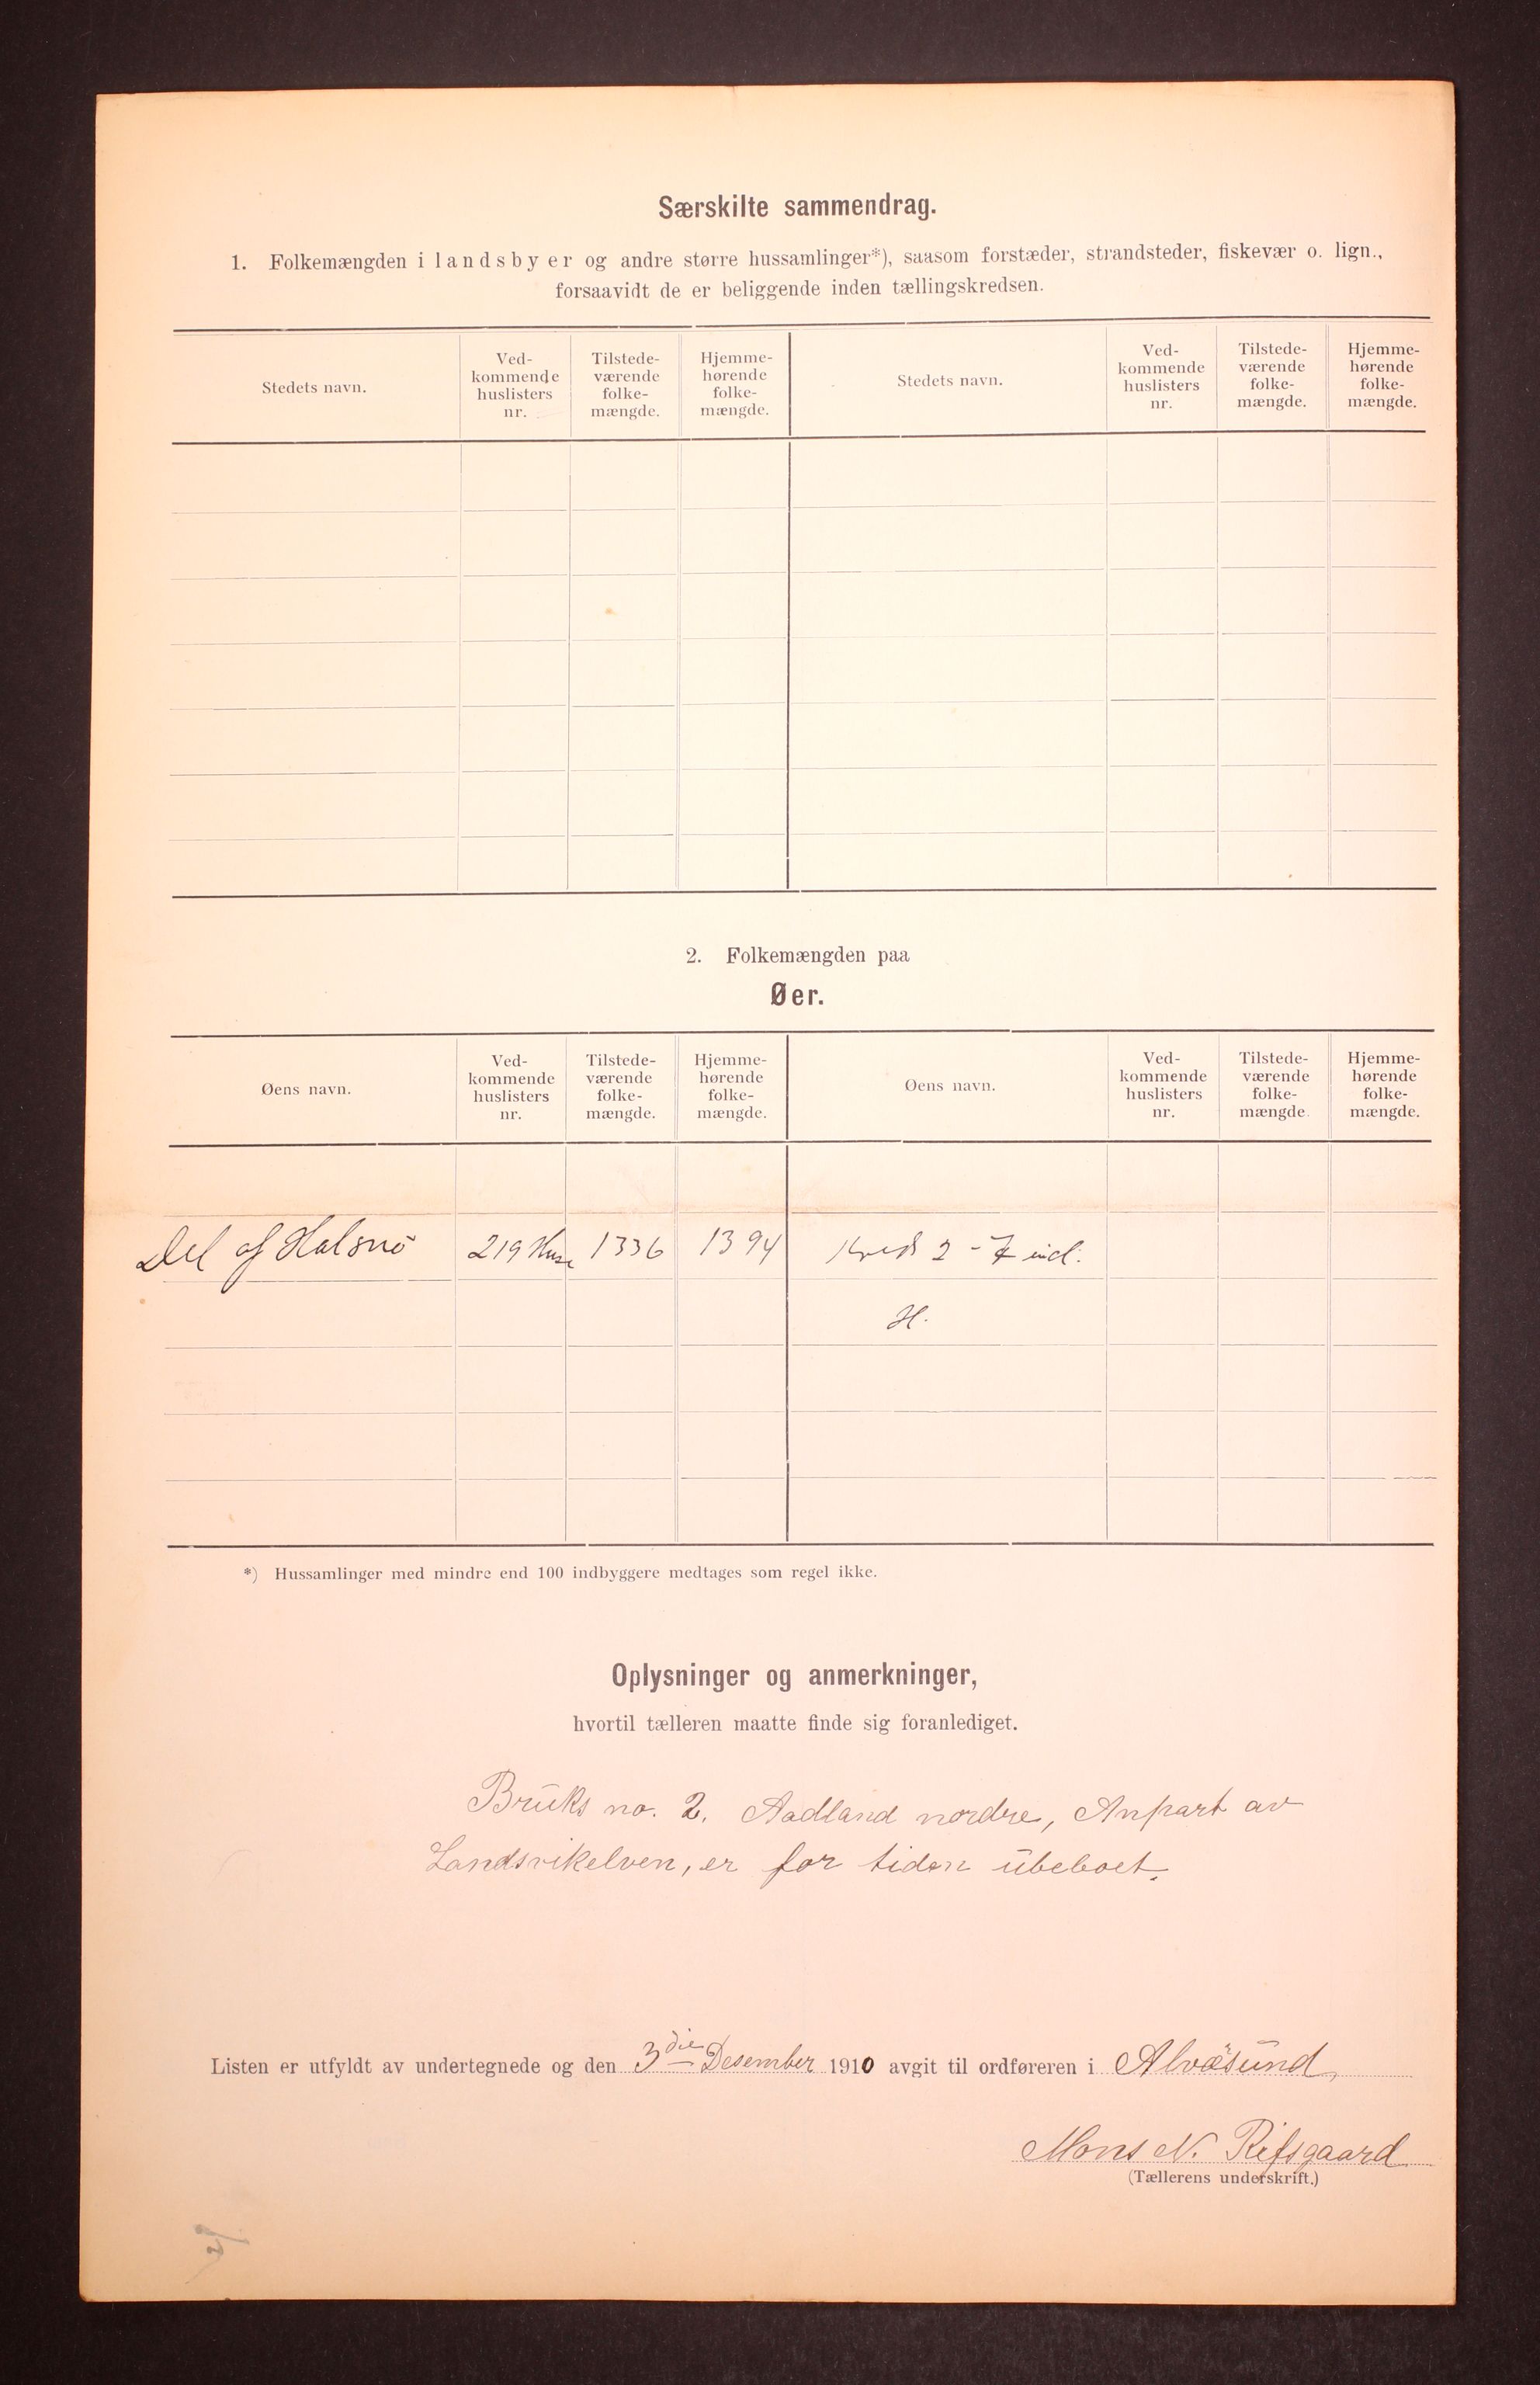 Særskilte sammendrag.
1. Folkemængden i landsbyer og andre større hussamlinger*), saasom forstæder, strandsteder, fiskevær o. lign.,
forsaavidt de er beliggende inden tællingskredsen.
Stedets navn.
Ved-
kommende
huslisters
nr.
Tilstede-
værende
folke-
mængde.
Hjemme-
hørende
folke-
mængde.
Stedets navn.
Ved-
kommende
huslisters
nr.
Tilstede-
værende
folke-
mængde.
Hjemme-
hørende
folke-
mængde.
2. Folkemængden paa
Øer.
Øens navn.
Ved-
kommende
huslisters
nr.
Tilstede-
værende
folke-
mængde.
Hjemme-
hørende
folke-
mængde.
Øens navn.
Ved-
kommende
huslisters
nr.
Tilstede-
værende
folke-
mængde.
Hjemme-
hørende
folke-
mængde.
Del af Halsnö 219 Huse 1336 1394 Kreds 2 - 7 incl.
H.
*) Hussamlinger med mindre end 100 indbyggere medtages som regel ikke.
Oplysninger og anmerkninger,
hvortil tælleren maatte finde sig foranlediget.
Bruks no. 2. Aadland nordre, Anpart av
Landsvikelven, er for tiden ubeboet.
Listen er utfyldt av undertegnede og den 3die Desember 1910 avgit til ordføreren i Alvøsund,
Mons N. Refsgaard
(Tællerens underskrift.)